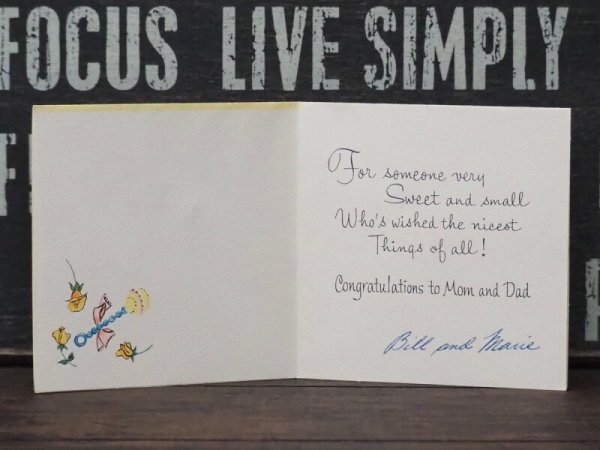 FOCUS LIVE SIMPLY
For someone very
Sweet and small
Who's wished the nicest
Things of all!
Congratulations to Mom and Dad
Bill and Marie